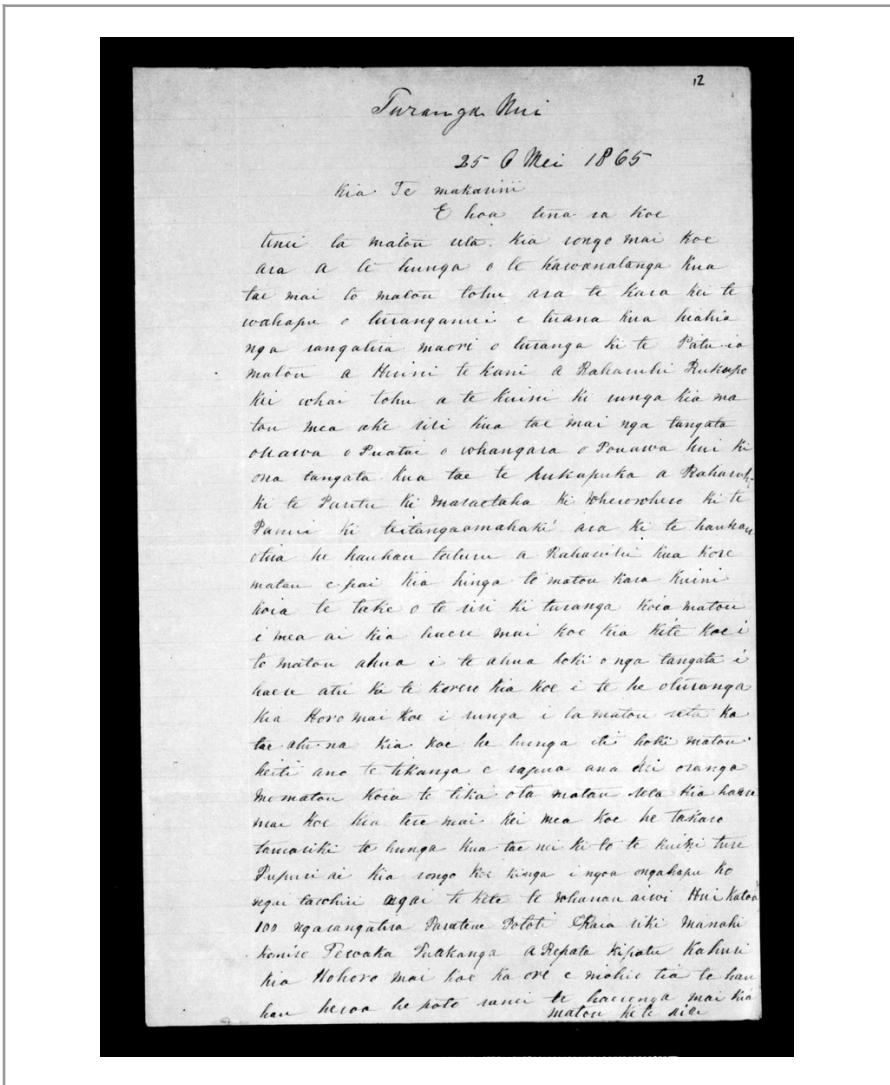 12
Turanga Nui
25 O Mei 1865
Kia Te makarini
E hoa tena ra koe
tenei ta matou reta. Kia rongo mai koe
ara a te hunga o te kawanatanga kua
tae mai to matou tohu ara te kara kei te
wahapu o turanganui e tu ana kua hiahia
nga rangatira maori o turanga ki te Patu ia
matou a Hirini te kani a Raharuhi Rukupo
kei whai tohu a te kuini ki runga kia ma
tou mea ake riri kua tae mai nga tangata
onawa o Puatai o whangara o Pouawa hui ki
ona tangata kua tae te pukapuka a Raharuhi
ki te Paritu ki Maraetaha ki wherowhero ki te
Pamri ki teitangaamahaki ara ki te hauhau
otira he hauhau tuturu a Raharuhi kua kore
matou e pai kia hinga to matou kara kuini
koia te take o te riri ki turanga koia matou
i mea ai kia haere mai koe kia kite koe i
to matou ahua i te ahua hoki o nga tangata i
haere atu ki te korero kia koe i te he oturanga
kia Horo mai koe i runga i ta matou reta ka
tae atu na kia koe he hunga iti hoki matou
keiti ano te tikanga e rapua ana hei oranga
mo matou koia te tika ota matou reta kia haere
mai koe kia tere mai kei mea koe he takaro
tamariki te hunga kua tae nei ki to te kuiki ture
Pupuri ai kia rongo koe kinga ingoa ongahapu ko
ngai tawhiri ngai te kete te whanau aiwi Hui katoa
100 ngarangatira Paratene Pototi Kara riki Manahi
komiro Tewaka Purakanga a Repata kipatu Kahuri
kia Hohoro mai koe ka ore e mohio tia te hau
hau heroa he poto ranei te haerenga mai kia
matou ki te riri